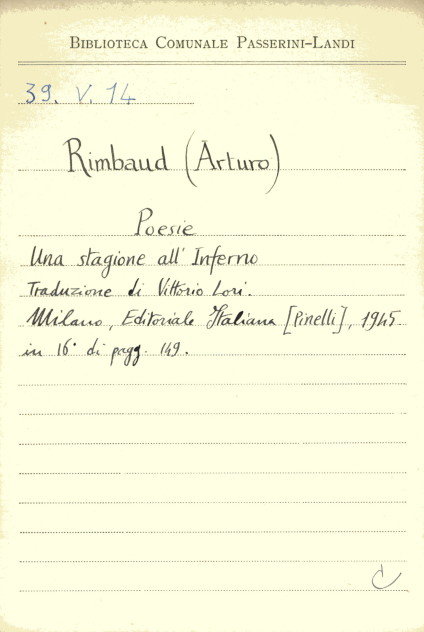 Biblioteca Comunale Passerini-Landi
39. V. 14
Rimbaud (Arturo)
Poesie
Una stagione all' Inferno
Traduzione di Vittorio Lori.
Milano, Editoriale Italiana [Pinelli], 1945
in 16° di pagg. 149.